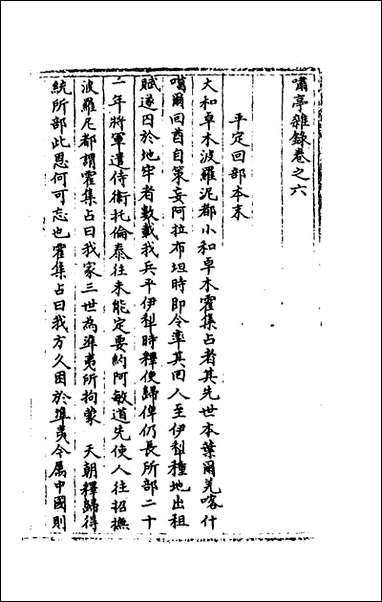 嘯亭雜錄卷之六
平定回部本末
大和卓木波羅泥都小和卓木霍集占者其先世本葉爾羌喀什
噶爾回酋自策妄阿拉布坦時即令率其回人至伊犁種地出租
賦遂囚於地牢者數載我兵平伊犁時釋使歸俾仍長所部二十
二年將軍遣侍衛托倫泰往未能定要約阿敏道先使人往招撫
波羅尼都謂霍集占曰我家三世為準夷所拘蒙　天朝釋歸得
統所部此恩何可忘也霍集占曰我方久困於準夷今屬中國則